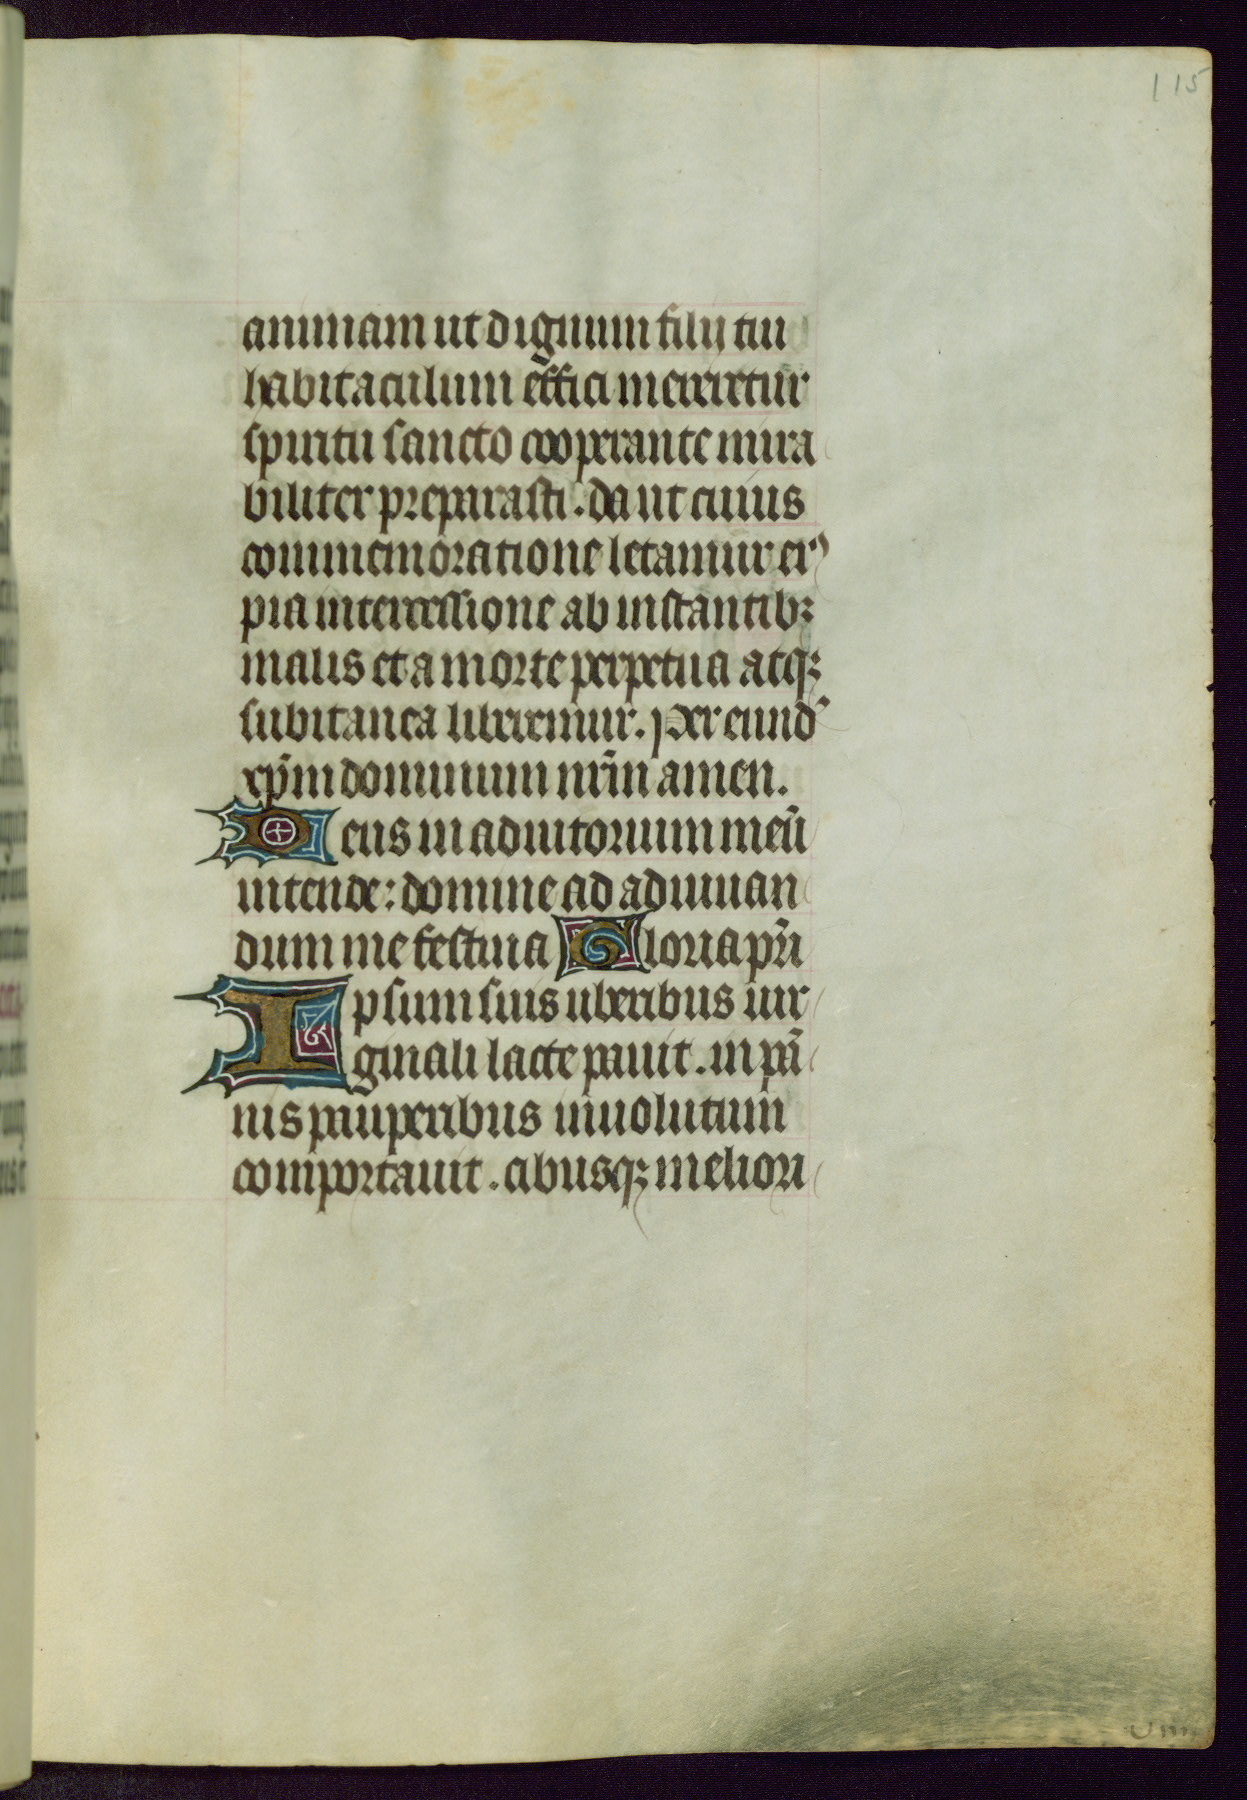 115
animam ut dignum filij tui
habitaculum effici mereretur
spiritu sancto cooperante mira
biliter preparasti. da ut cuius
commemoratione letamur eiꝰ
pia intercessione ab instantibꝫ
malis et a morte perpetua atqꝫ
subitanea liberemur. per eund̾
xp̄m dominum nr̄m amen.
Deus in adiutorium meū
intende: domine ad adiuuan
dum me festina Gloria pr̄i
Ipsum suis uberibus uir
ginali lacte pauit. in pā
nis pauperibus inuolutum
comportauit. cibusqꝫ meliori